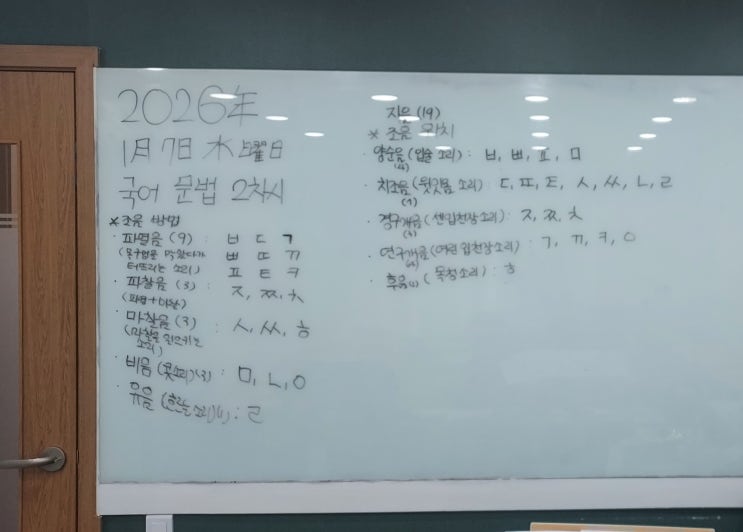 2026年
1月 7日 水曜日
국어 문법 2차시
※조음 방법
· 파열음 (9) : ㅂ ㄷ ㄱ
ㅃ ㄸ ㄲ
터뜨리는 소리) ㅍ ㅌ ㅋ
· 파찰음 (3) : ㅈ, ㅉ, ㅊ
(파열+마찰)
· 마찰음 (3) : ㅅ, ㅆ, ㅎ
(마찰을 일으키는
소리)
· 비음 (콧소리)(3) : ㅁ, ㄴ, ㅇ
· 유음 (흐르는 소리)(1) : ㄹ
자음 (19)
※ 조음 위치
· 양순음 (입술 소리) : ㅂ, ㅃ, ㅍ, ㅁ
(4)
· 치조음 (윗잇몸 소리) : ㄷ, ㄸ, ㅌ, ㅅ, ㅆ, ㄴ, ㄹ
(7)
· 경구개음 (센입천장소리) : ㅈ, ㅉ, ㅊ
(3)
· 연구개음 (여린 입천장소리) : ㄱ, ㄲ, ㅋ, ㅇ
(4)
· 후음(1) ( 목청소리) : ㅎ